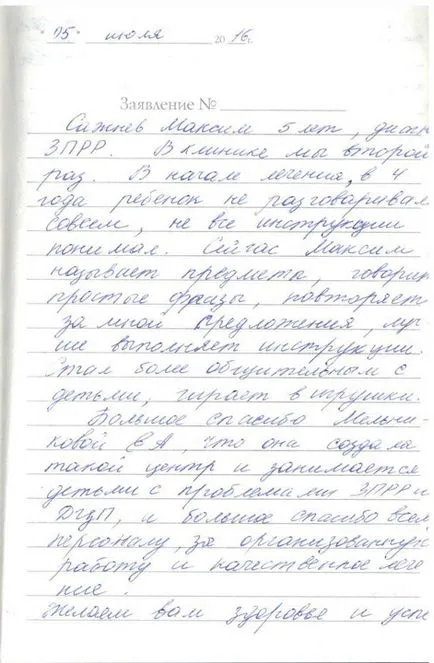 "05" июля 2016г.
Заявление №
Сажнев Максим 5 лет, диагн
ЗПРР. В клинике мы второй
раз. В начале лечения, в 4
года ребенок не разговаривал
совсем, не все инструкции
понимал. Сейчас Максим
называет предмета, говорит
простые фразы, повторяет
за мной предложения, луч-
ше выполняет инструкции.
Стал более общительным с
детьми, играет в игрушки.
Большое спасибо Мельни-
ковой ЕА, что она создала
такой центр и занимается
детьми с проблемами ЗПРР и
ДЦП, и большое спасибо всем
персоналу, за организованную
работу и качественное лече
ние.
Желаем вам здоровье и успе